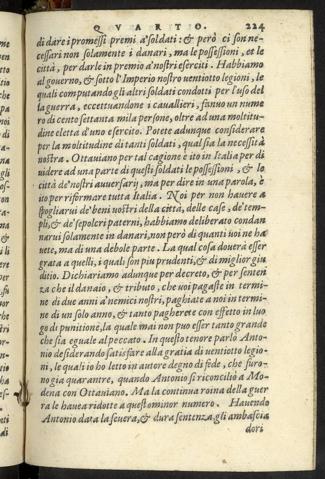 QVARTO. 224
di dare i promessi premi a' soldati: & però ci son ne-
cessari non solamente i danari, ma le possessioni, et le
città, per darle in premio a' nostri eserciti. Habbiamo
al governo, & sotto l'Imperio nostro ventiotto legioni, le
quali computando gli altri soldati condotti per l'uso del
la guerra, eccettuandone i cavallieri, fanno un nume
ro di cento settanta mila persone, oltre ad una moltitu-
dine eletta d'uno esercito. Potete adunque considerare
per la moltitudine di tanti soldati, qual sia la necessità
nostra. Ottaviano per tal cagione è ito in Italia per di
videre ad una parte di questi soldati le possessioni, & le
città de' nostri avversarij, ma per dire in una parola, è
ito per riformare tutta Italia. Noi per non havere a
spogliarui de' beni vostri della città, delle case, de' tem-
pli, & de' sepolcri paterni, habbiamo deliberato condan
narui solamente in danari, non però di quanti voi ne ha
vete, ma di una debole parte. La qual cosa doverà esser
grata a quelli, i quali son piu prudenti, & di miglior giu
ditio. Dichiariamo adunque per decreto, & per senten
za che il danaio, & tributo, che voi pagaste in termi-
ne di due anni a' nemici nostri, paghiate a noi in termi-
ne di un solo anno, & tanto pagherete con effetto in luo
go di punitione, la quale mai non puo esser tanto grande
che sia eguale al peccato. In questo tenore parlò Anto-
nio desiderando satisfare alla gratia di ventiotto legio-
ni, le quali io ho letto in autore degno di fede, che furo-
no gia quarantre, quando Antonio si riconciliò a Mo-
dena con Ottaviano. Ma la continua roina della guer
ra le havea ridotte a questo minor numero. Havendo
Antonio data la severa, & dura sentenza, gli ambascia
dori